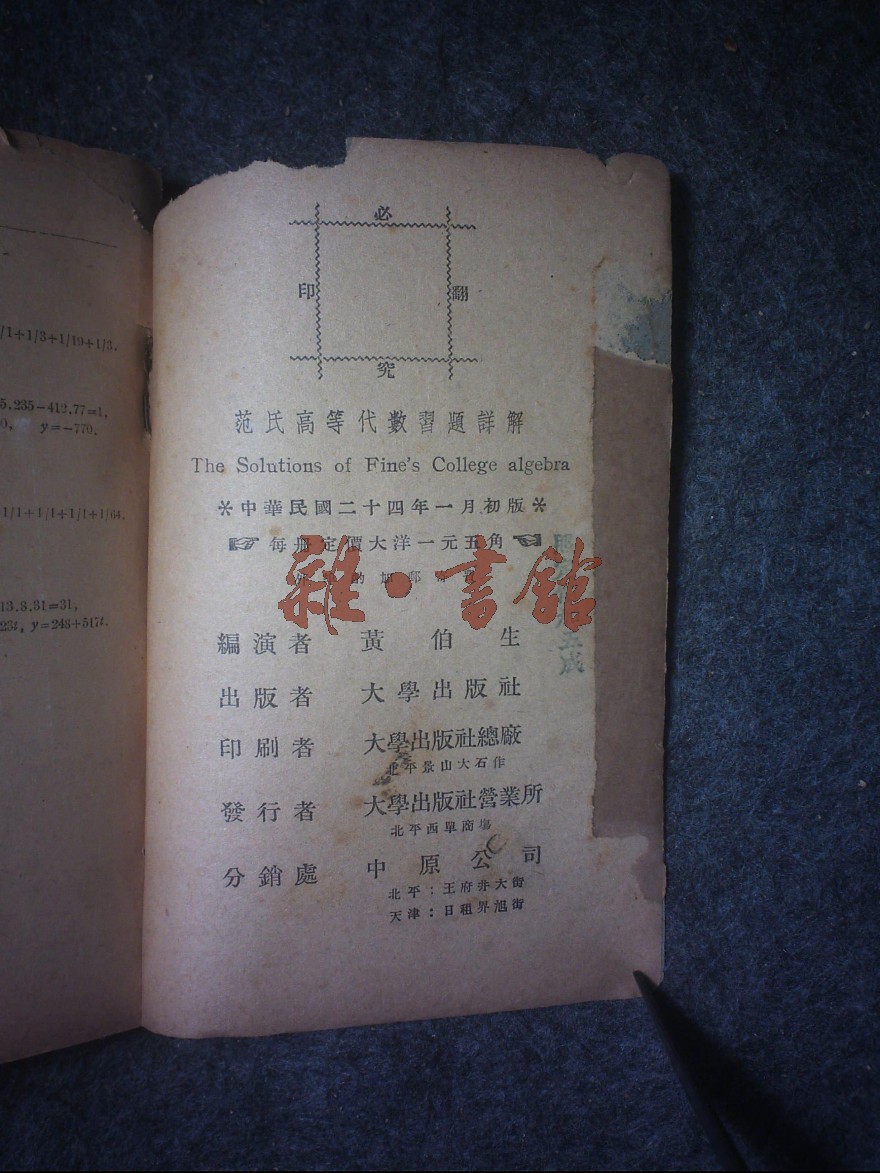 /1+1/3+1/19+1/3.
5.235-412.77=1,
0, y=-770.
1/1+1/1+1/1+1/64.
13.8.31=31,
23t, y=248+517t.
必
印 翻
究
范氏高等代數習題詳解
The Solutions of Fine's College algebra
＊中華民國二十四年一月初版＊
每冊定價大洋一元五角
酌加郵
雜·書館
編演者 黃伯生
出版者 大學出版社
印刷者 大學出版社總廠
北平景山大石作
發行者 大學出版社營業所
北平西單商場
分銷處 中原公司
北平：王府井大街
天津：日租界旭街